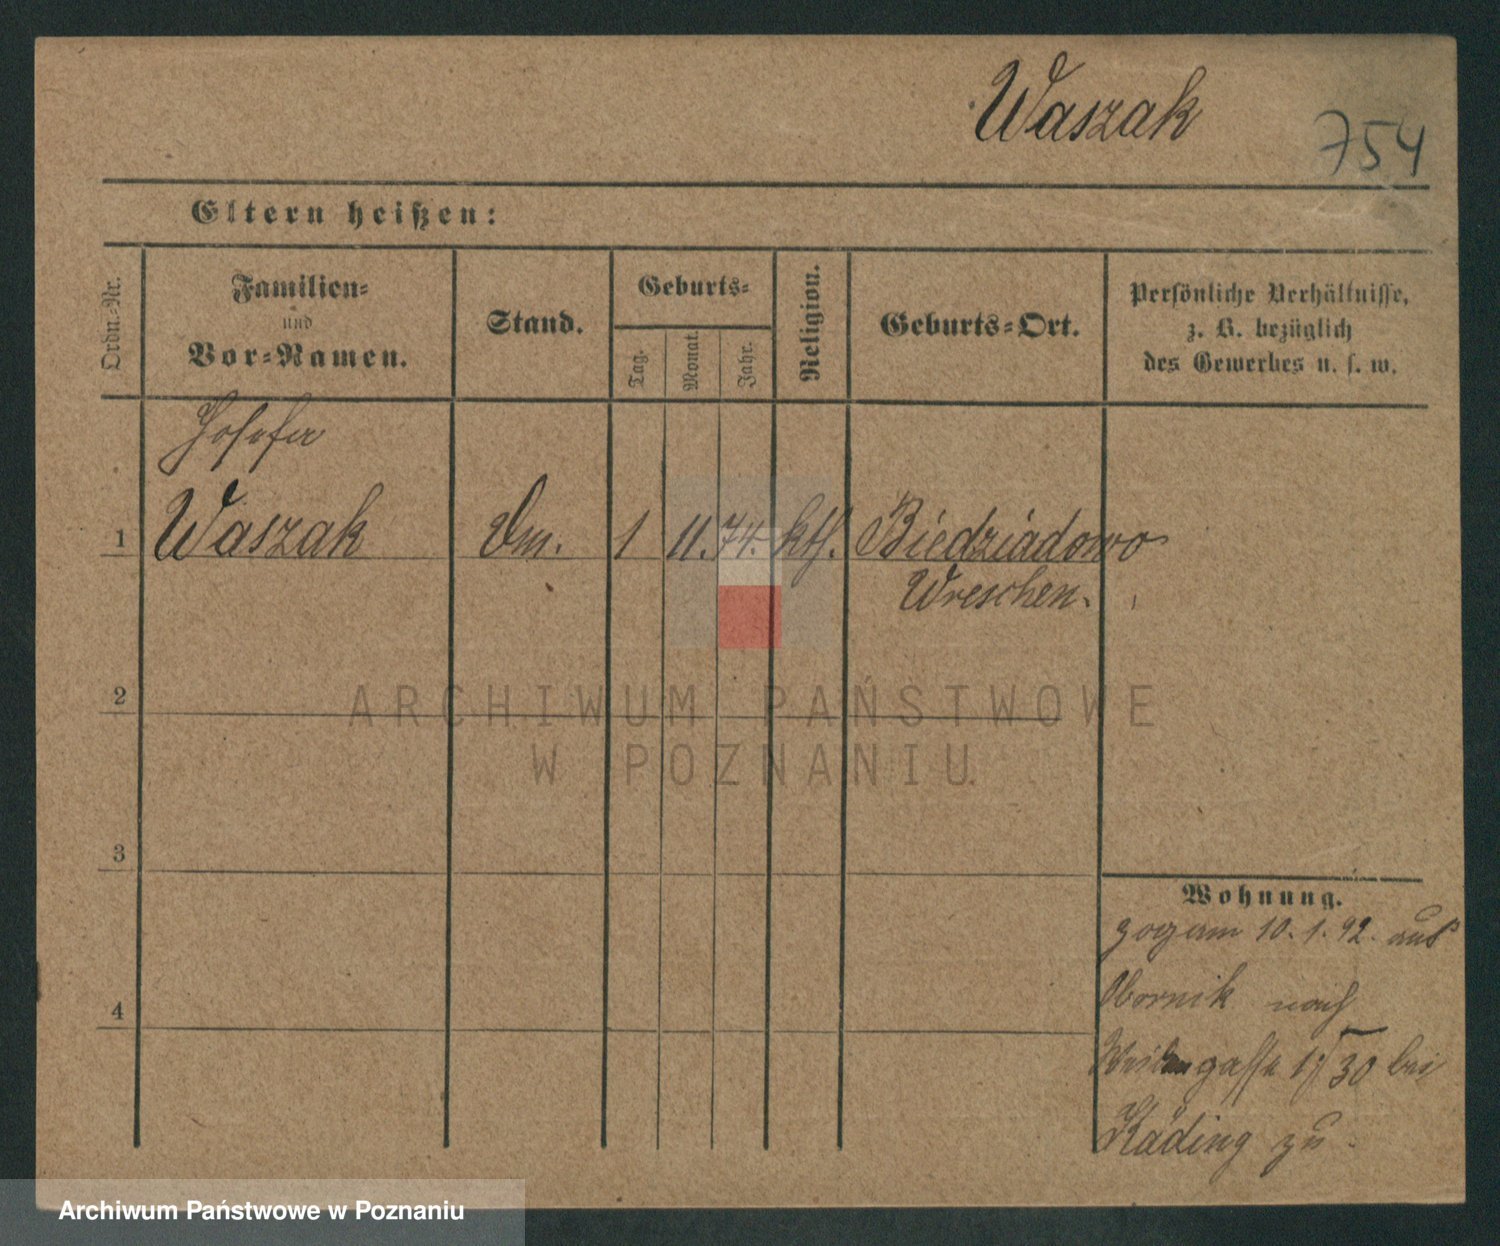 Waszak
754
Eltern heißen:
Ordn.-Nr.
Familien-
und
Vor-Namen.
Stand.
Geburts-
Tag.
Monat.
Jahr.
Religion.
Geburts-Ort.
Persönliche Verhältnisse,
z. B. bezüglich
des Gewerbes u. s. w.
Josefa
1 Waszak 1 11. 74. kth. Biedziadowo
Wreschen.
2
3
4
Wohnung.
zog am 10. 1. 92. aus
Obornik nach
gasse 17/30 bei
Käding zu.
ARCHIWUM PAŃSTWOWE
W POZNANIU
Archiwum Państwowe w Poznaniu